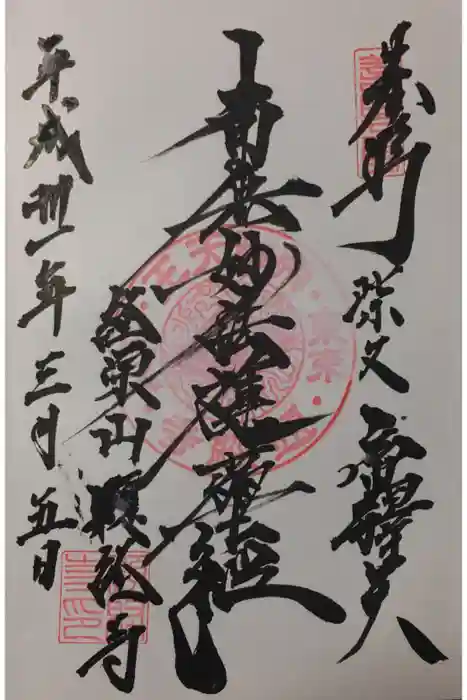 葛飾 柴又 帝釋天
南無妙法蓮華経
経栄山題経寺
平成卅一年三月五日